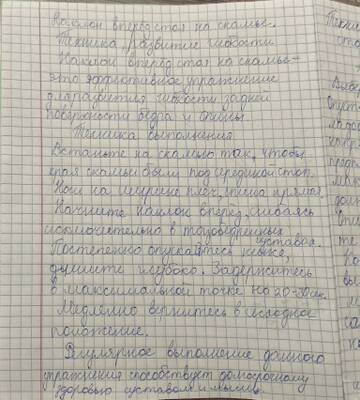 Наклон вперед стоя на скамье.
Техника, развитие гибкости
Наклон вперед стоя на скамье -
это эффективное упражнение
для развития гибкости задней
поверхности бедра и спины.
Техника выполнения
Встаньте на скамью так, чтобы
края скамьи были под серединой стоп.
Ноги на ширине плеч, спина прямая.
Начните наклон вперёд, сгибаясь
исключительно в тазобедренных
суставах.
Постепенно опускайтесь ниже,
дышите глубоко. Задержитесь
в максимальной точке на 20-30 сек.
Медленно вернитесь в исходное
положение.
Регулярное выполнение данного
упражнения способствует
здоровью суставов и мышц.